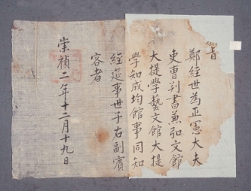 旨
鄭經世爲正憲大夫
吏曹判書兼弘文館
大提學藝文館大提
學知成均館事同知
經筵事世子右副賓
客者
崇禎二年十二月十九日